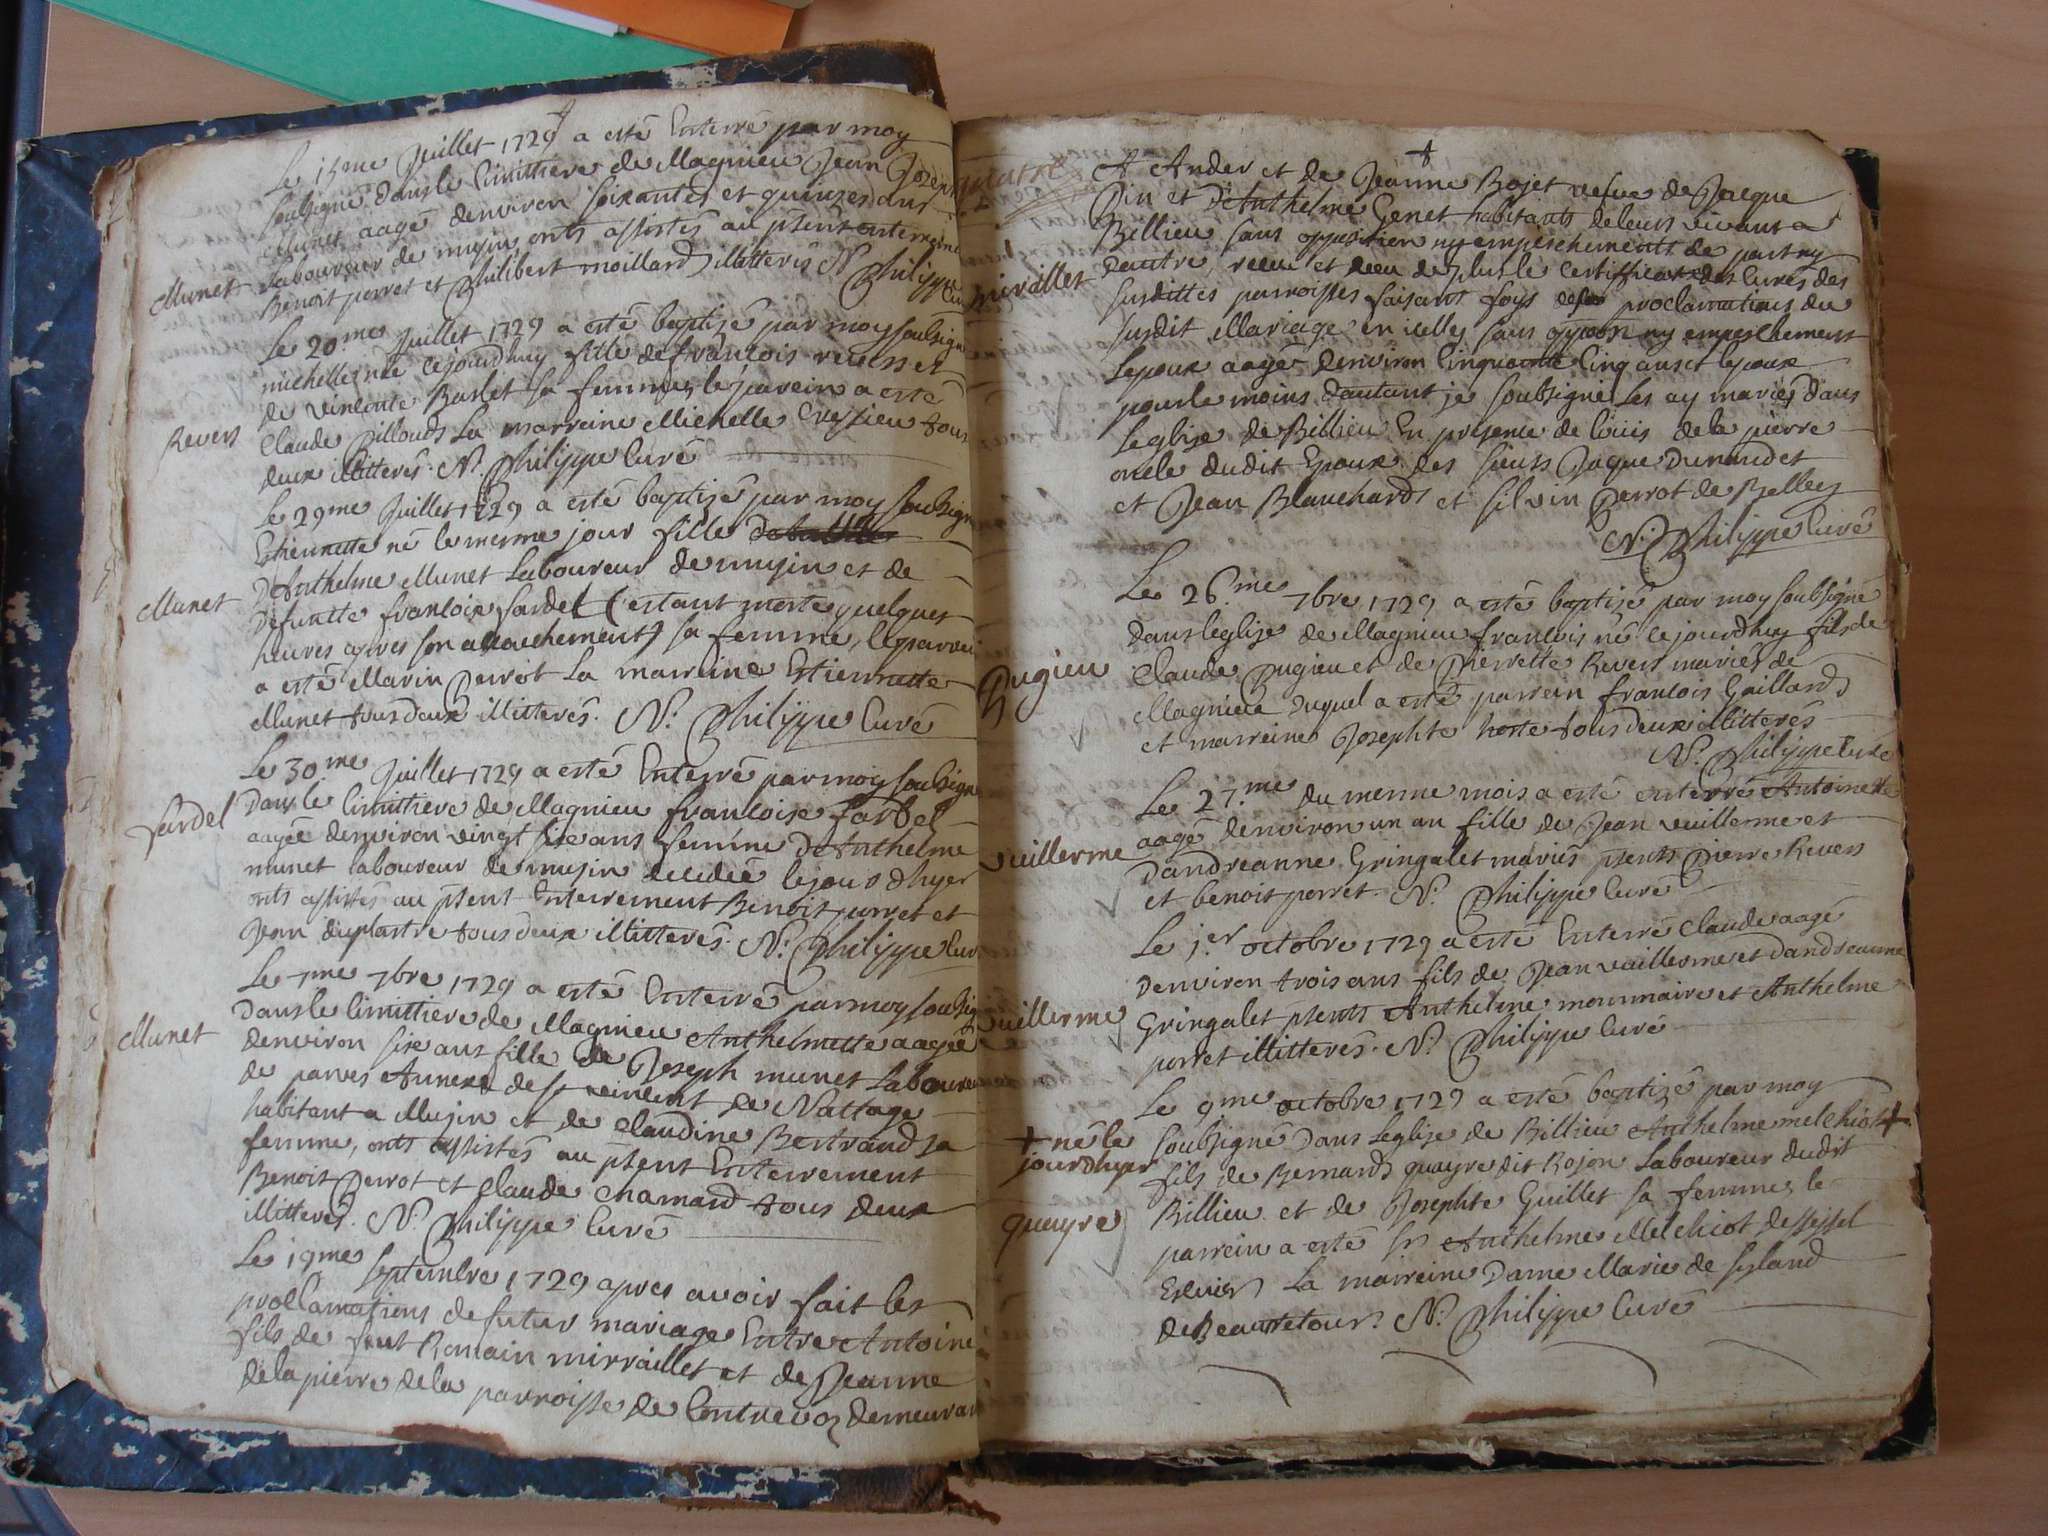 Le 15me Juillet 1729 a esté Enterré par moy
soubsigné dans le Cimittiere de Magnieu Jean Joseph
Munet aagé denviron soixante et quinzes ans
Munet
Laboureur de musin onts assistés au psent enterrement
Benoit perret et Philibert moillard illitterés N Philippe Curé
Le 20me Juillet 1729 a esté baptizé par moy soubsigné
michelle née cejourdhuy fille de francois revers et
de vincente Barlet sa femme, le parrein a esté
Revers
Claude Pilloud La marreine Michelle Creytieu tous
deux illitterés. N. Philippe Curé
Le 29me Juillet 1729 a esté baptizé par moy soubsigné
Etiennette né le mesme jour fille
D'Anthelme Munet Laboureur de musin et de
Munet
Defuncte francoise fardel (estant morte quelques
heures apres son accouchement) sa femme, le parrei
a esté Marin Perrot La marreine Estiennette
Munet tous deux illitterés. N: Philippe Curé
Le 30me Juillet 1729 a esté Enterré par moy soubsigné
Dans le Cimittiere de Magnieu francoise fardel
fardel
aagée denviron vingt sixe ans femme D'Anthelme
munet laboureur de musin decedée le jour d'hyer
onts assistés au psent Enterrement Benoit perret et
Jean duplastre tous deux illitterés. N: Philippe Cur
Le 7me 7bre 1729 a esté Enterré par moy soubsig
Dans le Cimittiere de Magnieu Anthelmette aagée
Munet
denviron sixe ans fille de Joseph munet Laboureu
de parves Annexe de st vincent de Nattage
habitant a Musin et de Claudine Bertrand sa
femme, onts assistés au psent Enterrement
Benoit Perrot et Claude Chamard tous deux
illitterés. N. Philippe Curé
Le 19me Septembre 1729 apres avoir fait les
proclamations de futur mariage Entre Antoine
fils de feut Romain mirraillet et de Jeanne
delapierre de la parroisse de Contrevoz demeurant
A Ander et de Jeanne Rojet vefue de Jacque
Pin et D'Anthelme Genet habitants de leurs vivant a
Billieu sans opposition ny empeschements de part ny
mirallet
Dautre, receu et veu de plus le Certifficat des Curés des
susdittes parroisses faisant foys des proclamations du
susdit Mariage en icelles sans opposon ny empeschement
Lepoux aagé denviron Cinquante Cinq ans et lepouse
pour le moins dautant je soubsigné Les ay mariés dans
Leglise de Billieu En presence de Louis de la pierre
oncle dudit Epoux des sieurs Jaque Durand et
et Jean Blanchard et silvin Perrot de Belley
N: Philippe Curé
Le 26.me 7bre 1729 a esté baptizé par moy soubsigné
Dans leglise de Magnieu francois né cejourdhuy fils de
Pugieu
Claude Pugieu et de Pierrette Revers mariés de
Magnieu Duquel a esté parrein francois Gaillard
et marreine Josephte hoste tous deux illitterés
N. Philippe Curé
Le 27.me du mesme mois a esté enterré Antoinette
vuillerme
aagé denviron un an fille de Jean vuillerme et
Dandreanne Gringalet mariés psents Pierre Revers
et benoit perret. N: Philippe Curé
Le 1er octobre 1729 a esté Enterré Claude aagé
Denviron trois ans fils de Jean vuillerme et Dandreanne
vuillerme
Gringalet psents Anthelme monnaire et Anthelme
perret illitterés. N: Philippe Curé
Le 9me octobre 1729 a esté baptizé par moy
+ né le
jourdhyer
soubsigné Dans Leglise de Billieu Anthelme melchiot +
fils de Bernard quayre dit Rojon Laboureur dudit
quayre
Billieu et de Josephte Guillet sa femme, le
parrein a esté sr Anthelme Melchiot desseyssel
La marreine Dame Marie de seyland
de Beauretour. N: Philippe Curé